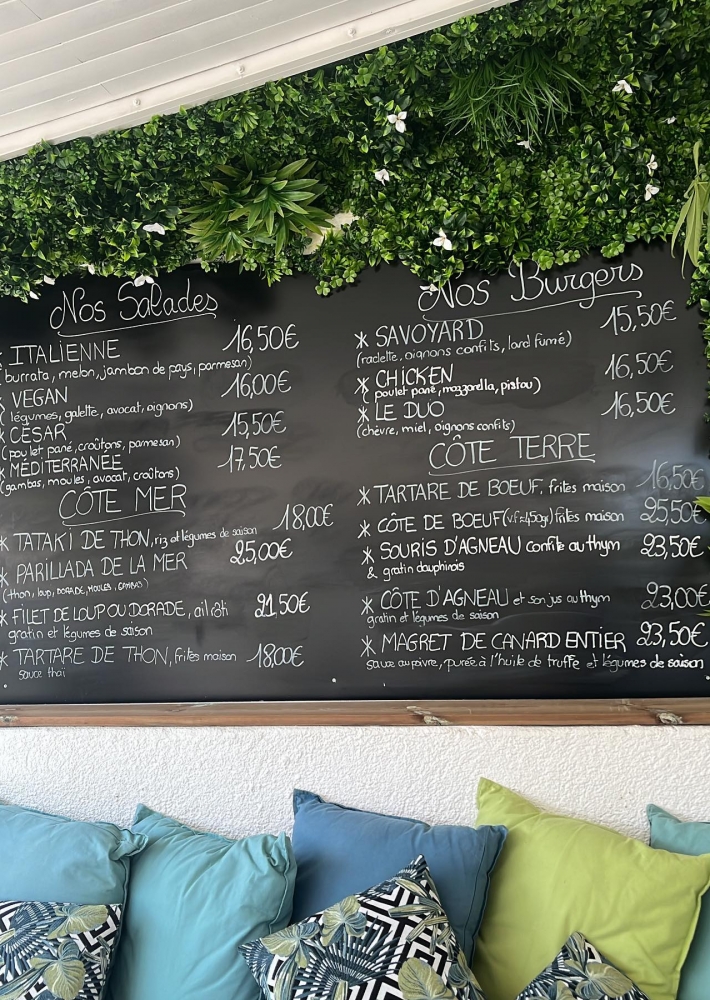 Nos Salades
* ITALIENNE 16,50€
(burrata, melon, jambon de pays, parmesan)
* VEGAN 16,00€
(légumes, galette, avocat, oignons)
* CÉSAR 15,50€
(poulet pané, croûtons, parmesan)
* MÉDITERRANÉE 17,50€
(gambas, moules, avocat, croûtons)
CÔTE MER
* TATAKI DE THON, riz et légumes de saison 18,00€
* PARILLADA DE LA MER 25,00€
(thon, loup, DORADE, MOULES, GAMBAS)
* FILET DE LOUP OU DORADE, ail rôti 21,50€
gratin et légumes de saison
* TARTARE DE THON, frites maison 18,00€
sauce thaï
Nos Burgers
* SAVOYARD 15,50€
(raclette, oignons confits, lard fumé)
* CHICKEN 16,50€
(poulet pané, mozzarella, pistou)
* LE DUO 16,50€
(chèvre, miel, oignons confits)
CÔTE TERRE
* TARTARE DE BOEUF, frites maison 16,50€
* CÔTE DE BOEUF (v.f ±450gr) frites maison 25,50€
* SOURIS D'AGNEAU confite au thym 23,50€
& gratin dauphinois
* CÔTE D'AGNEAU et son jus au thym 23,00€
gratin et légumes de saison
* MAGRET DE CANARD ENTIER 23,50€
sauce au poivre, purée à l'huile de truffe et légumes de saison